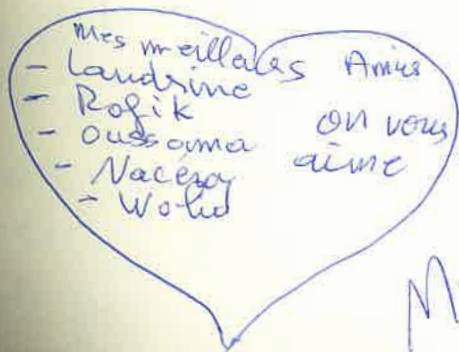 Mes meilleures Amies
- Landrine
- Rofik
- Oussama
- Nacéra
- Wolid
on vous
aime
M